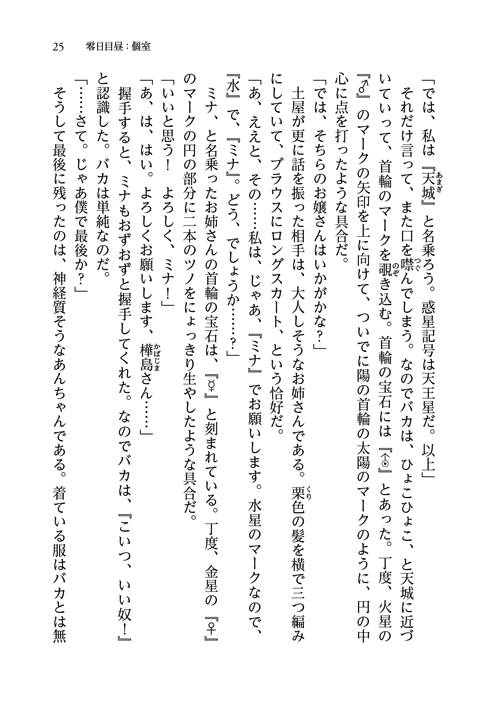 25　零日目昼：個室
「では、私は『天城』と名乗ろう。惑星記号は天王星だ。以上」
　それだけ言って、また口を噤んでしまう。なのでバカは、ひょこひょこ、と天城に近づ
いていって、首輪のマークを覗き込む。首輪の宝石には『⛢』とあった。丁度、火星の
『♂』のマークの矢印を上に向けて、ついでに陽の首輪の太陽のマークのように、円の中
心に点を打ったような具合だ。
「では、そちらのお嬢さんはいかがかな？」
　土屋が更に話を振った相手は、大人しそうなお姉さんである。栗色の髪を横で三つ編み
にしていて、ブラウスにロングスカート、という恰好だ。
「あ、ええと、その……私は、じゃあ、『ミナ』でお願いします。水星のマークなので、
『水』で、『ミナ』。どう、でしょうか……？」
　ミナ、と名乗ったお姉さんの首輪の宝石は、『☿』と刻まれている。丁度、金星の『♀』
のマークの円の部分に二本のツノをにょっきり生やしたような具合だ。
「いいと思う！　よろしく、ミナ！」
「あ、は、はい。よろしくお願いします、樺島さん……」
　握手すると、ミナもおずおずと握手してくれた。なのでバカは、『こいつ、いい奴！』
と認識した。バカは単純なのだ。
「……さて。じゃあ僕で最後か？」
　そうして最後に残ったのは、神経質そうなあんちゃんである。着ている服はバカとは無